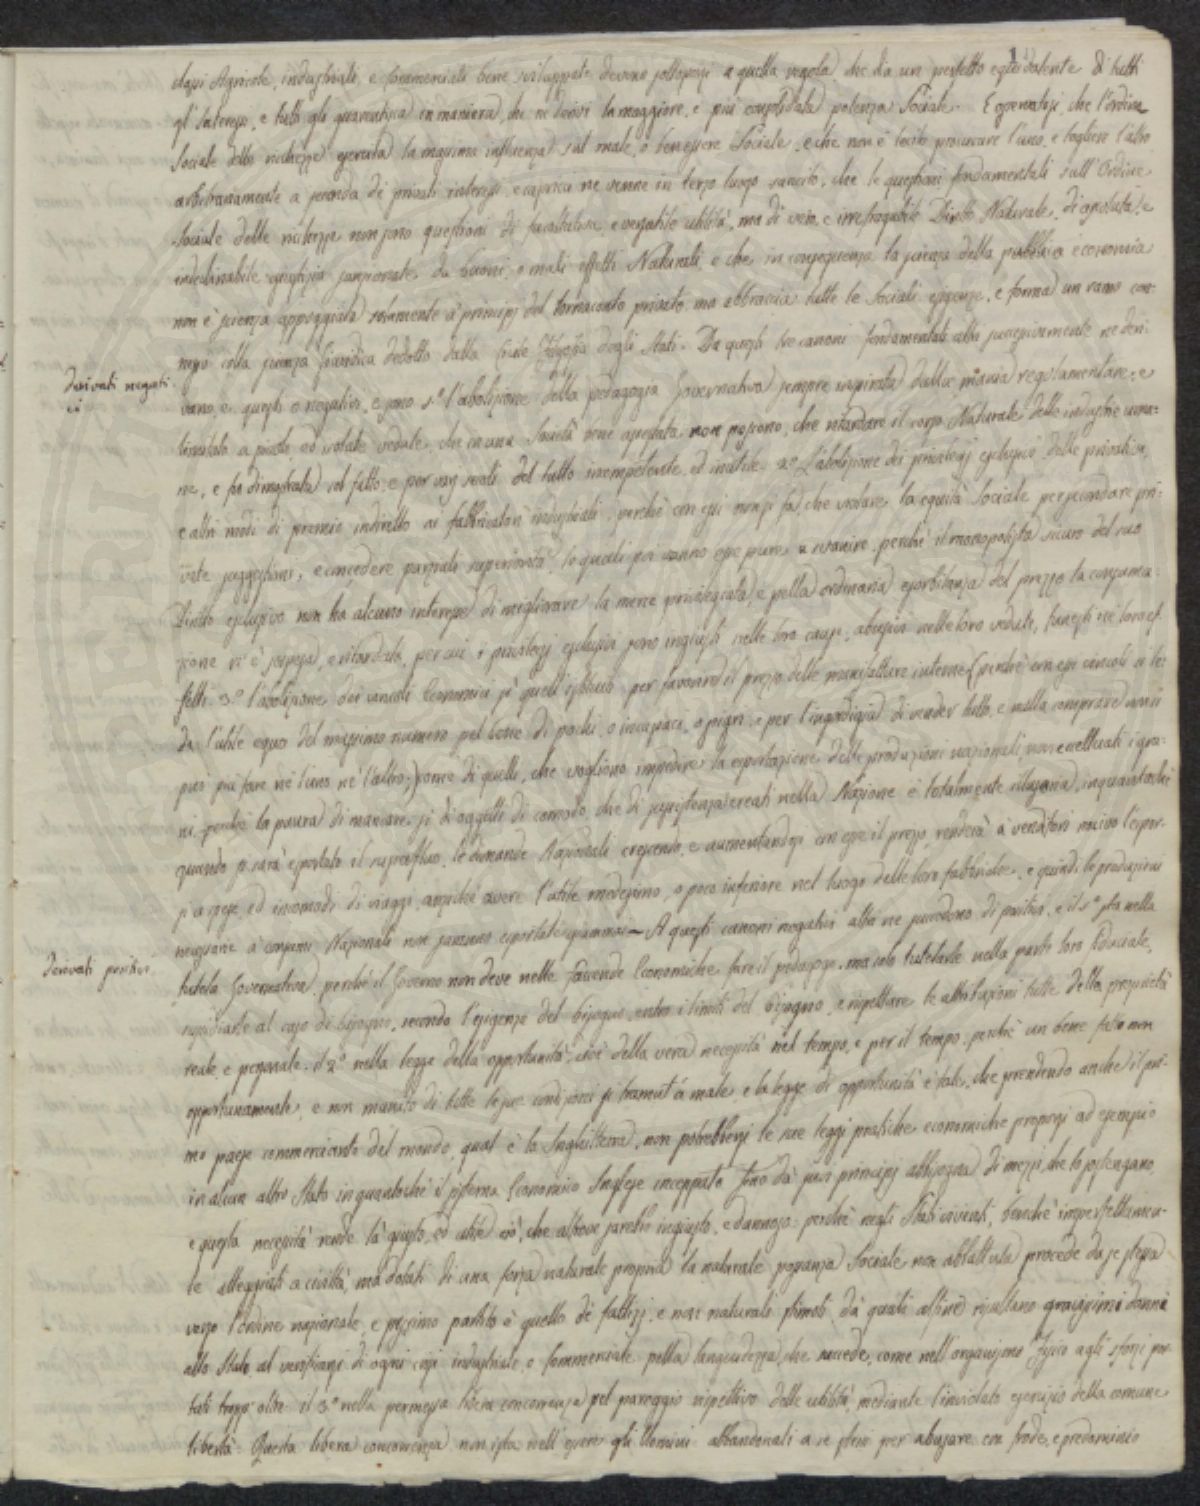 classi Agricole, industriali, e commerciali bene sviluppate devono sottoporsi a quella regola, che dia un perfetto equivalente di tutti
gl'interessi, e tutti gli guarentisca in maniera, che ne derivi la maggiore, e più consolidata potenza Sociale. E operatasi che l'ordine
Sociale delle ricchezze esercita la massima influenza sul male, o benessere Sociale, e che non è lecito procurare l'uno, e togliere l'altro
arbitrariamente a seconda de' privati interessi, e capricci ne venne in terzo luogo sancito, che le questioni fondamentali sull'Ordine
Sociale delle ricchezze non sono questioni di facoltativa, e versatile utilità, ma di vero, e irrefragabile Diritto Naturale, di assoluta, e
indeclinabile giustizia sanzionate da buoni, o mali effetti Naturali, e che in conseguenza la scienza della pubblica economia
non è scienza appoggiata solamente a' principj del tornaconto privato, ma abbraccia tutte le Sociali esigenze, e forma un ramo con-
nesso colla scienza Giuridica dedotto dalla Civile Filosofia degli Stati. Da questi tre canoni fondamentali altri successivamente ne deri-
Derivati negati-
vi
vano, e questi o negativi, e sono 1.° l'abolizione della pedagogia Governativa sempre inspirata dalla mania regolamentare, e
limitata a piccole, ed isolate vedute, che in una Società bene assestata non possono, che ritardare il corso Naturale delle industrie uma-
ne, e fu dimostrata sul fatto, e per varj secoli del tutto incompetente, ed inutile. 2.° L'abolizione dei privilegj esclusivi, delle privative,
e altri modi di premio indiretto ai fabbricatori industriali, perchè con essi non si fa, che violare la equità Sociale per secondare pri-
vate suggestioni, e concedere parziali superiorità, le quali poi vanno esse pure a svanire, perchè il monopolista sicuro del suo
Diritto esclusivo non ha alcuno interesse di migliorare la merce privilegiata, e pella ordinaria esorbitanza del prezzo la consuma-
zione vi è sospesa, e ritardata, per cui i privilegj esclusivi sono ingiusti nelle loro cause, abusivi nelle loro vedute, funesti ne' loro ef-
fetti. 3.° l'abolizione dei vincoli Economici sì quelli istituiti per favorire il prezzo delle manifatture interne (perchè con essi vincoli si le-
da l'utile equo del massimo numero pel bene di pochi, o incapaci, o pigri, e per l'ingordigia di vender tutto, e nulla comprare
può più fare nè l'uno nè l'altro;) come di quelli, che vogliono impedire la esportazione delle produzioni nazionali, non eccettuati i gra-
ni, perchè la paura di mancare sì di oggetti di comodo, che di sussistenza creati nella Nazione è totalmente illusoria, inquantochè
quando si sarà esportato il superfluo, le dimande Nazionali crescendo, e aumentandosi con esse il prezzo, renderà a' venditori nocivo l'espor-
si a spese, ed incomodi di viaggi, anzichè avere l'utile medesimo, o poco inferiore nel luogo delle loro fabbriche, e quindi le produzioni
necessarie a' consumi Nazionali non saranno esportate giammai. A questi canoni negativi altri ne succedono di positivi, e il 1.° sta nella
Derivati positivi
tutela Governativa, perchè il Governo non deve nelle faccende Economiche fare il pedagogo, ma solo tutelarle nella parte loro fiduciale,
sussidiarle al caso di bisogno, secondo l'esigenze del bisogno, entro i limiti del bisogno, e rispettare le attribuzioni tutte della proprietà
reale, e personale. il 2.° nella legge della opportunità, cioè della vera necessità nel tempo, e per il tempo, perchè un bene fatto non
opportunamente, e non munito di tutte le sue condizioni si tramuta in male, e la legge di opportunità è tale, che prendendo anche il pri-
mo paese commerciante del mondo, qual è la Inghilterra, non potrebbersi le sue leggi pratiche economiche proporsi ad esempio
in alcun altro Stato inquantochè il sistema Economico Inglese inceppato fino da' suoi principj abbisogna di mezzi, che lo sostengano,
e questa necessità rende là giusto, ed utile ciò, che altrove sarebbe ingiusto, e dannoso: perchè negli Stati civizzati, benchè imperfettamen-
te atteggiati a civiltà, ma dotati di una forza naturale propria la naturale possanza Sociale non abbattuta procede da se stessa
verso l'ordine nazionale, e pessimo partito è quello de' fattizj, e non naturali stimoli, da' quali alfine risultano gravissimi danni
allo Stato al verificarsi di ogni crisi industriale, o Commerciale pella languidezza, che succede, come nell'organismo Fisico agli sforzi por-
tati tropp'oltre. il 3.° nella permessa libera concorrenza pel pareggio rispettivo delle utilità, mediante l'inviolato esercizio della comune
libertà. Questa libera concorrenza non ista nell'essere gli Uomini abbandonati a se stessi per abusare con frode, e predominio